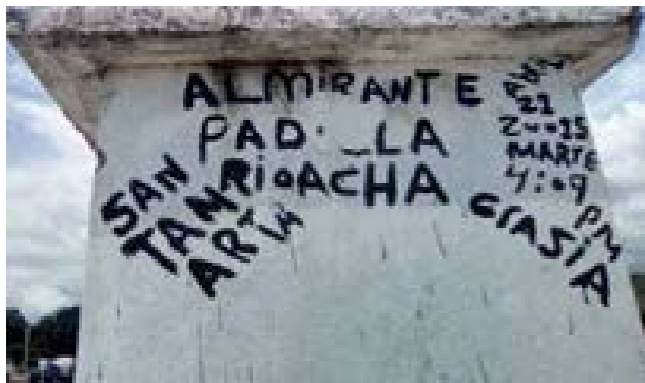 ALMIRANTE
PAD. _LA
RIOACHA
SAN
TAN
ARTA
21
2--15
MARTE
4:09
PM
GRASIA